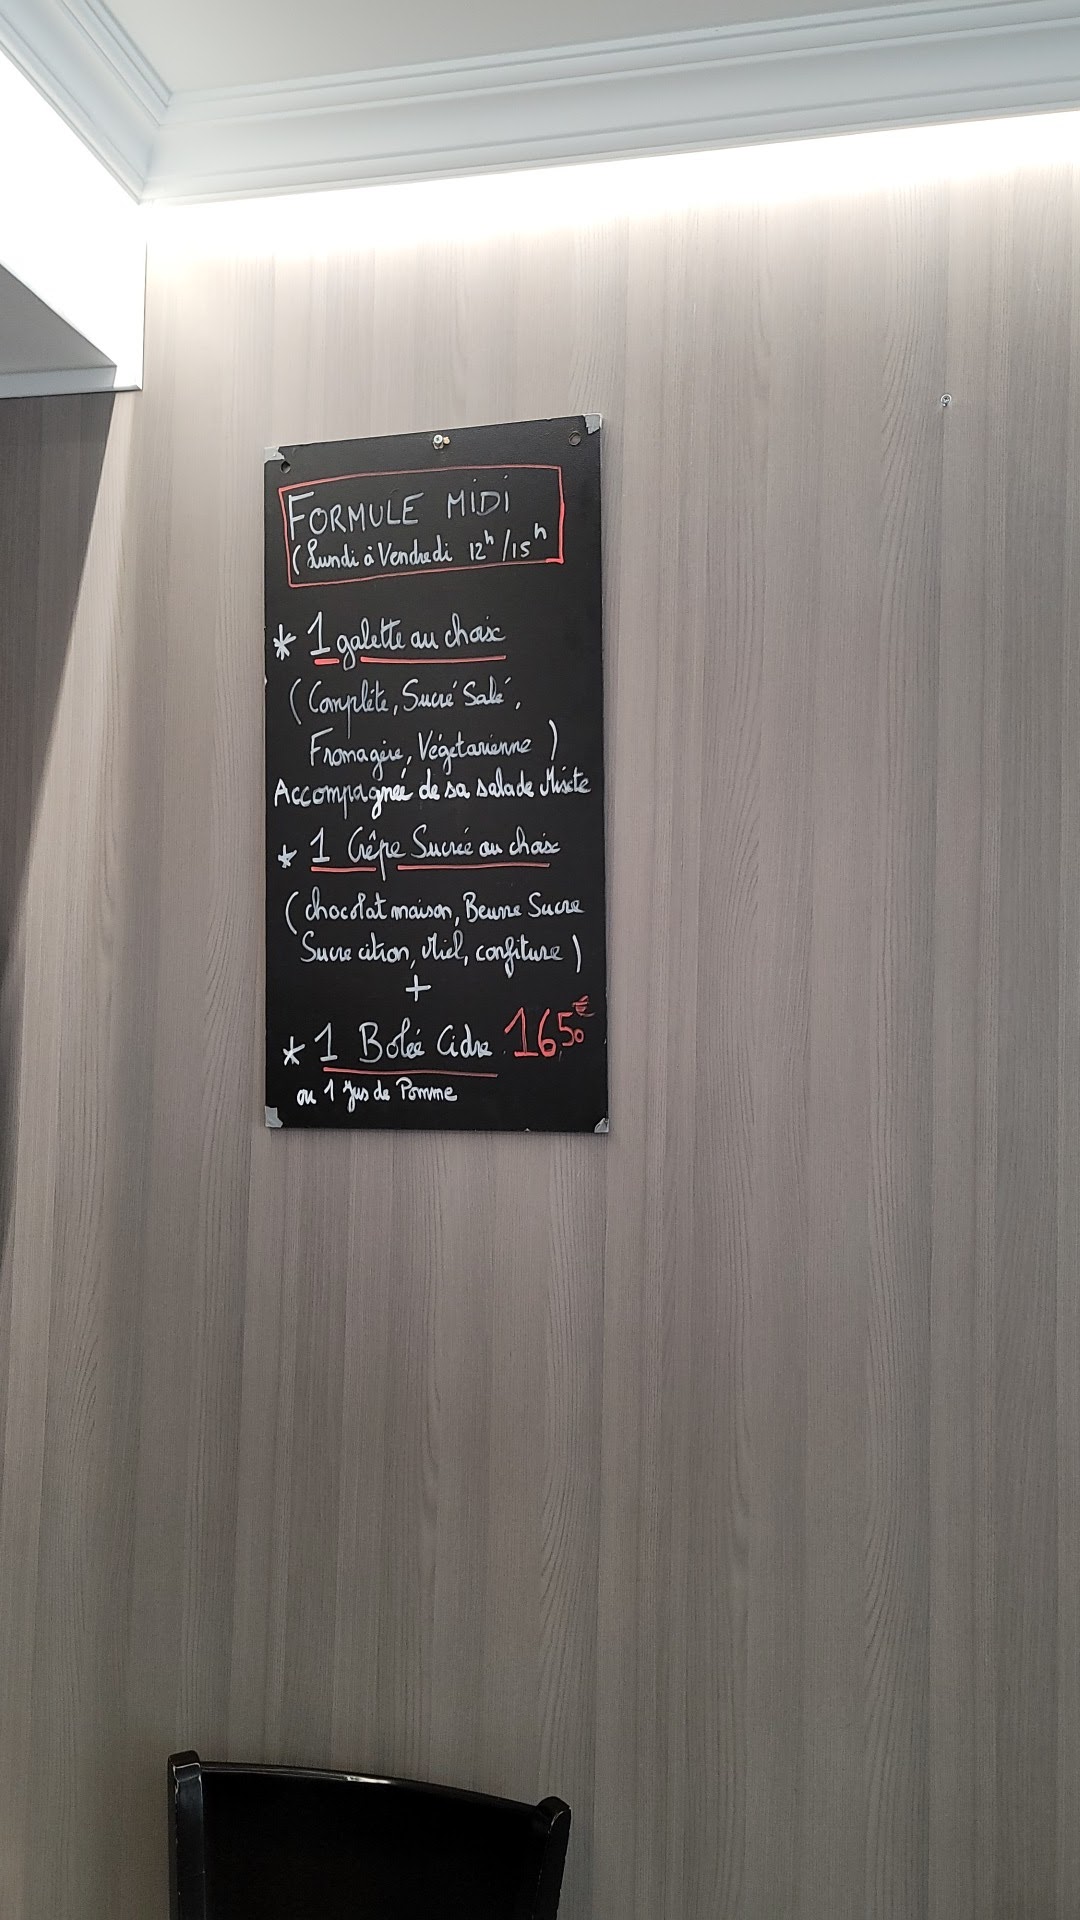 FORMULE MIDI
(Lundi à Vendredi 12h/15h
* 1 galette au choix
(Complète, Sucré Salé,
Fromagère, Végétarienne)
Accompagnée de sa salade Mixte
* 1 Crêpe Sucrée au choix
(chocolat maison, Beurre Sucre
Sucre citron, Miel, confiture)
+
* 1 Bolée Cidre 16,50€
ou 1 Jus de Pomme